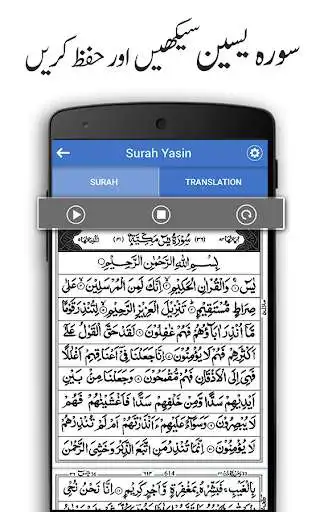 سورہ یسین سیکھیں اور حفظ کریں
Surah Yasin
SURAH TRANSLATION
سُوْرَةُ يٰسٓ مَكِّيَّةٌ
بِسْمِ اللهِ الرَّحْمٰنِ الرَّحِيْمِ
يٰسٓ ۝ وَالْقُرْاٰنِ الْحَكِيْمِ ۝ اِنَّكَ لَمِنَ الْمُرْسَلِيْنَ ۝ عَلٰى
صِرَاطٍ مُّسْتَقِيْمٍ ۝ تَنْزِيْلَ الْعَزِيْزِ الرَّحِيْمِ ۝ لِتُنْذِرَ قَوْمًا
مَّآ اُنْذِرَ اٰبَآؤُهُمْ فَهُمْ غٰفِلُوْنَ ۝ لَقَدْ حَقَّ الْقَوْلُ عَلٰٓى
اَكْثَرِهِمْ فَهُمْ لَا يُؤْمِنُوْنَ ۝ اِنَّا جَعَلْنَا فِيْٓ اَعْنَاقِهِمْ اَغْلٰلًا
فَهِيَ اِلَى الْاَذْقَانِ فَهُمْ مُّقْمَحُوْنَ ۝ وَجَعَلْنَا مِنْۢ بَيْنِ
اَيْدِيْهِمْ سَدًّا وَّمِنْ خَلْفِهِمْ سَدًّا فَاَغْشَيْنٰهُمْ فَهُمْ
لَا يُبْصِرُوْنَ ۝ وَسَوَآءٌ عَلَيْهِمْ ءَاَنْذَرْتَهُمْ اَمْ لَمْ تُنْذِرْهُمْ
لَا يُؤْمِنُوْنَ ۝ اِنَّمَا تُنْذِرُ مَنِ اتَّبَعَ الذِّكْرَ وَخَشِيَ الرَّحْمٰنَ
614
بِالْغَيْبِ فَبَشِّرْهُ بِمَغْفِرَةٍ وَّاَجْرٍ كَرِيْمٍ ۝ اِنَّا نَحْنُ نُحْيِ